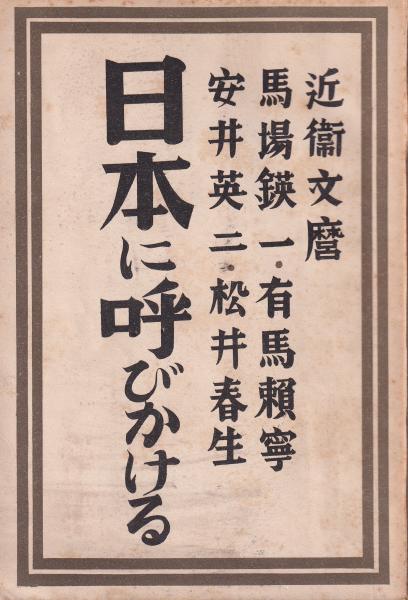 近衞文麿
馬場鍈一・有馬賴寧
安井英二・松井春生
日本に呼びかける